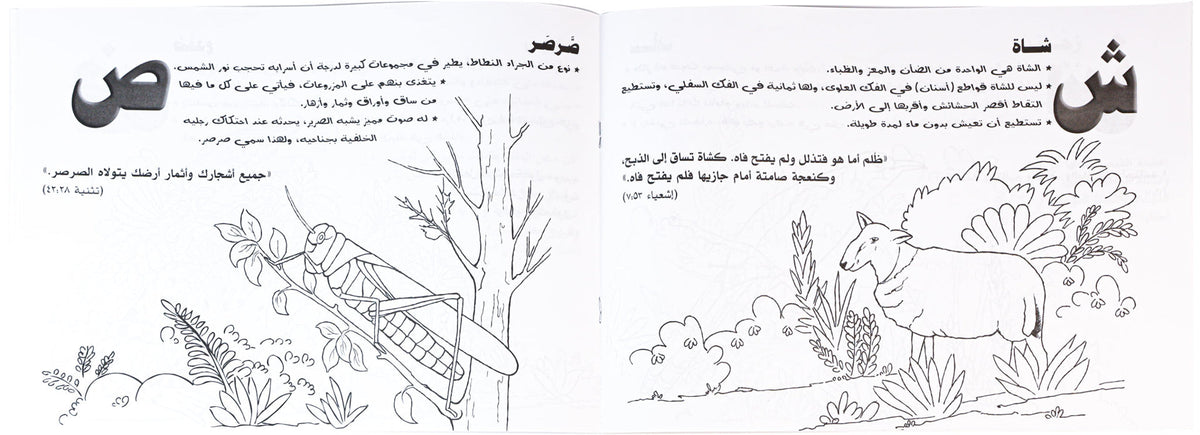 ش
شــاة
* الشاة هي الواحدة من الضأن والمعز والظباء.
* ليس للشاة قواطع (أسنان) في الفك العلوى، ولها ثمانية في الفك السفلي، وتستطيع
التقاط أقصر الحشائش وأقربها إلى الأرض.
* تستطيع أن تعيش بدون ماء لمدة طويلة.
«ظُلم أما هو فتذلل ولم يفتح فاه. كشاة تساق إلى الذبح،
وكنعجة صامتة أمام جازيها فلم يفتح فاه.»
(إشعياء ٧:٥٣)
ص
صَرصَر
* نوع من الجراد النطاط، يطير في مجموعات كبيرة لدرجة أن أسرابه تحجب نور الشمس.
* يتغذى بنهم على المزروعات، فيأتي على كل ما فيها
من ساق وأوراق وثمار وأزهار.
* له صوت مميز يشبه الصرير، يحدثه عند احتكاك رجليه
الخلفية بجناحيه، ولهذا سمي صرصر.
«جميع أشجارك وأثمار أرضك يتولاه الصرصر.»
(تثنية ٤٢:٢٨)